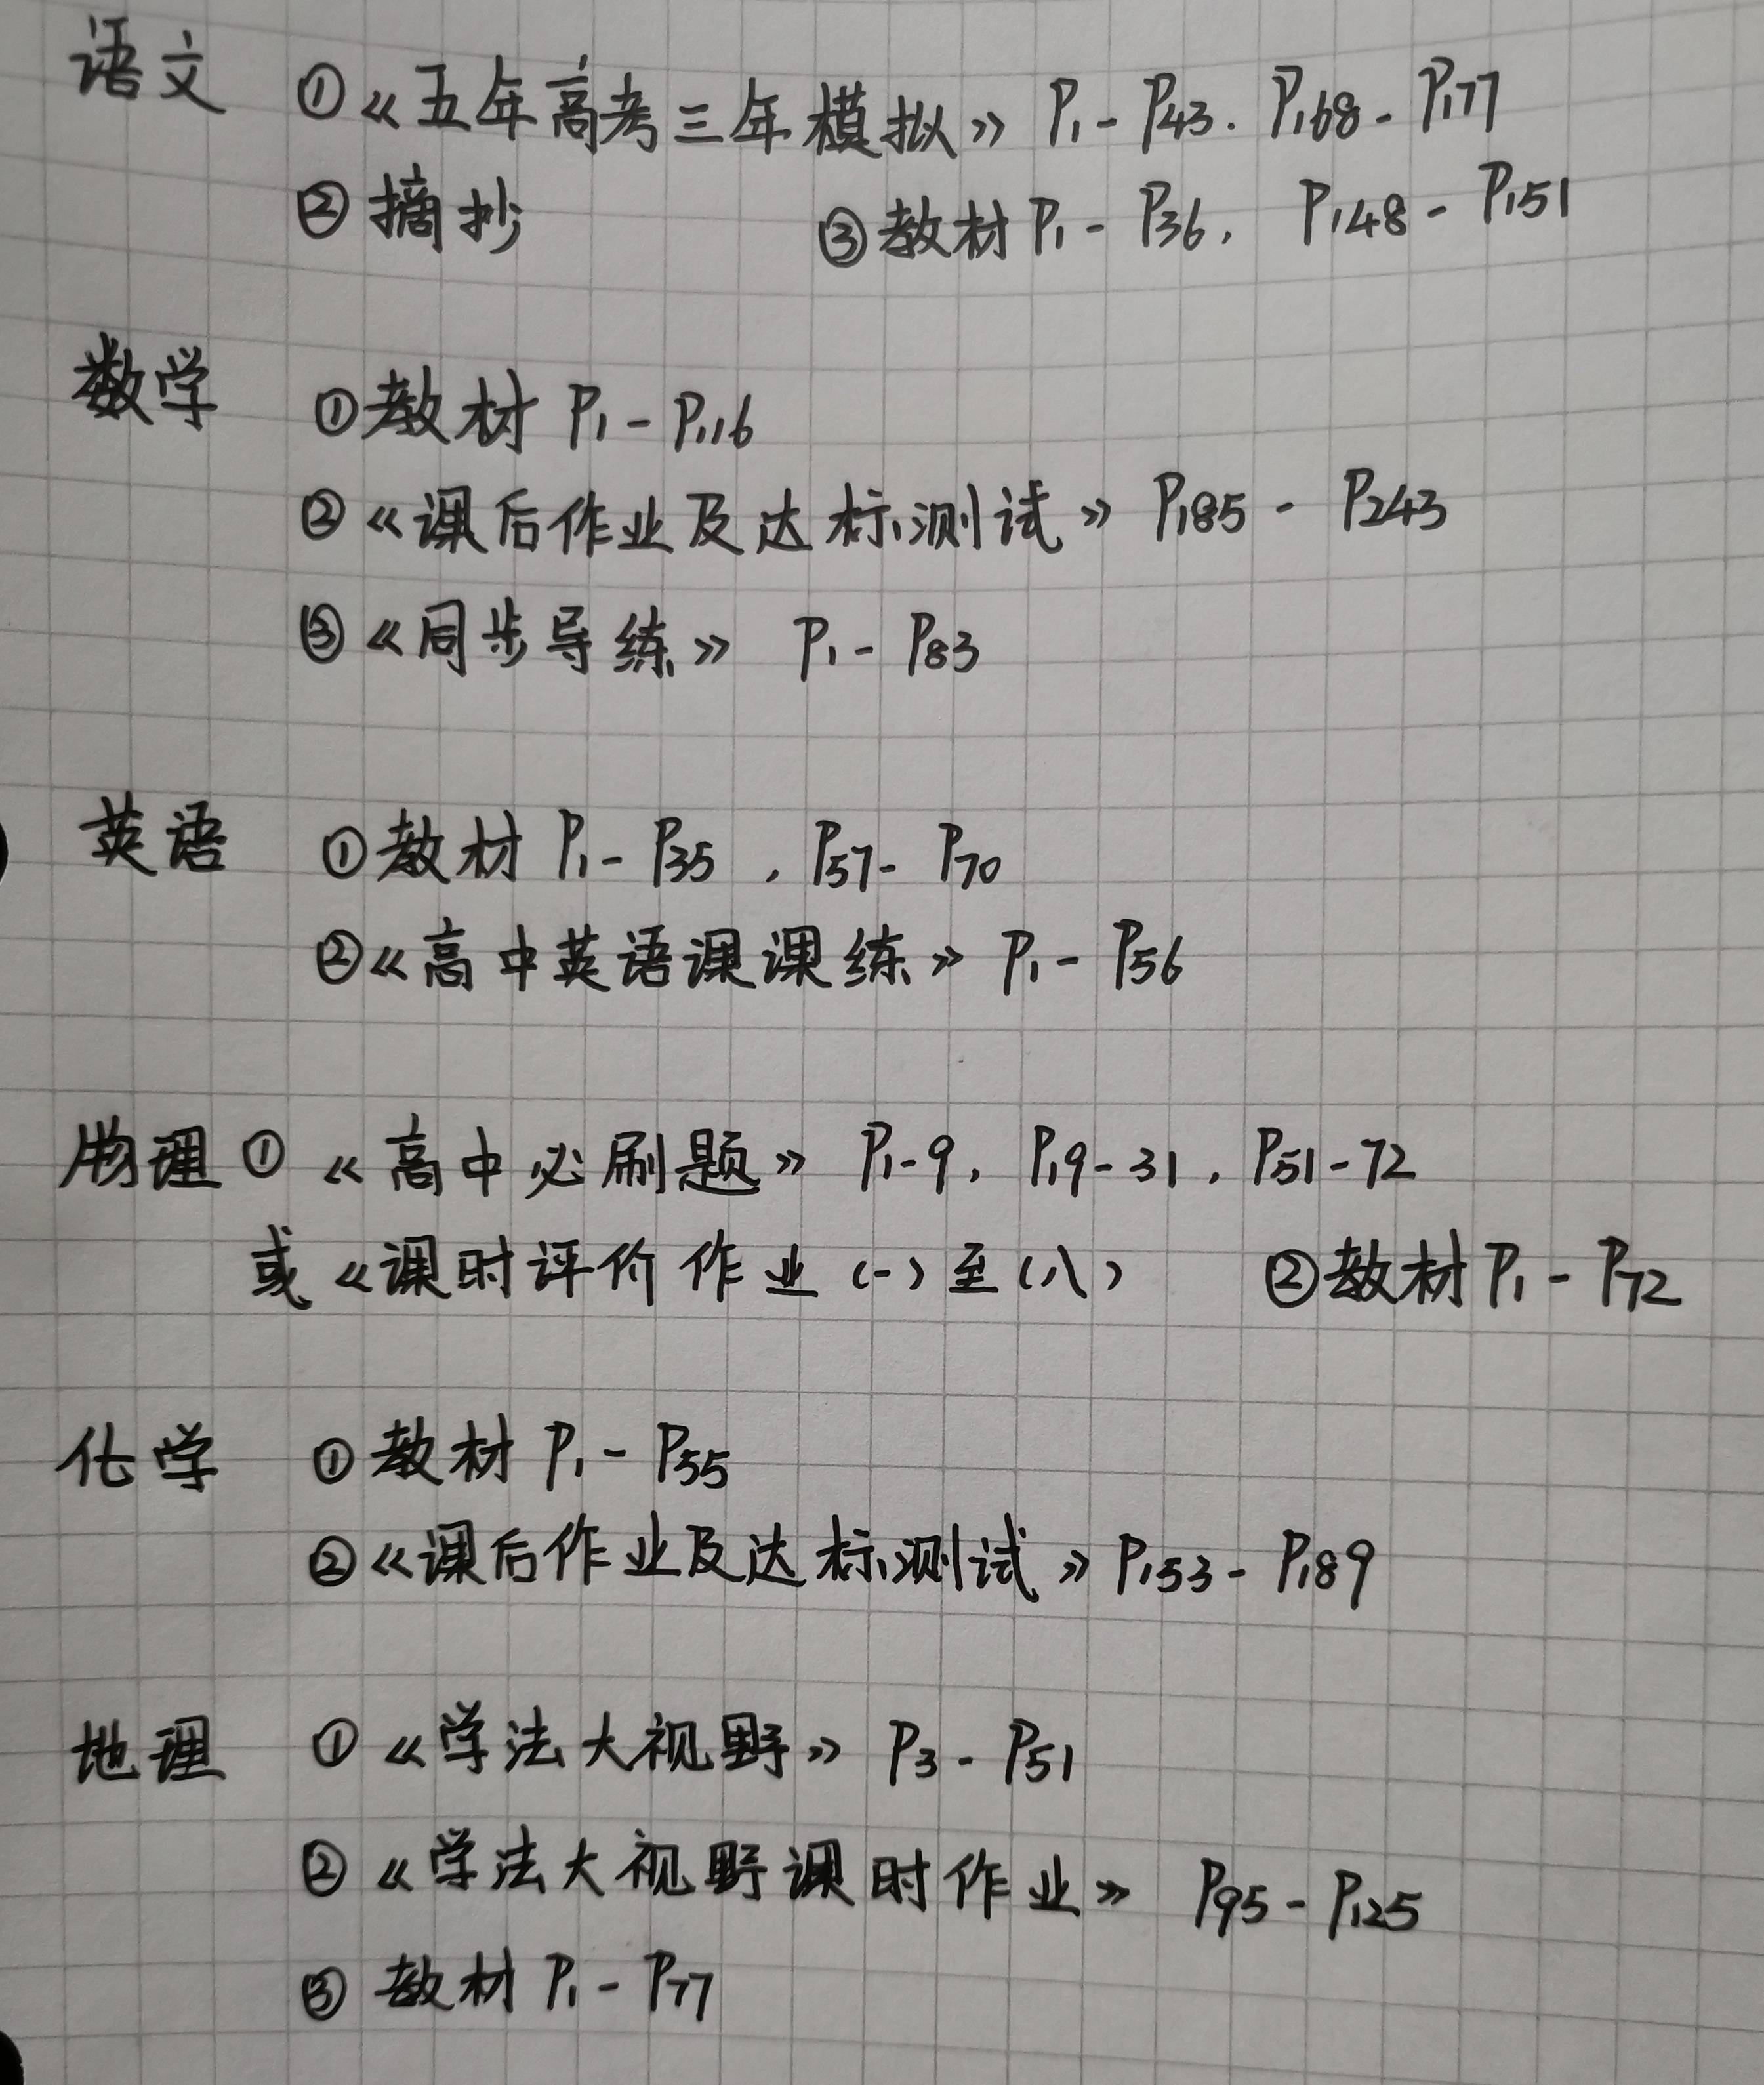 语文 ①《五年高考三年模拟》 P1-P43. P168-P177
②摘抄 ③教材 P1-P36, P148-P151
数学 ①教材 P1-P116
②《课后作业及达标测试》 P185-P243
③《同步导练》 P1-P83
英语 ①教材 P1-P35, P57-P70
②《高中英语课课练》 P1-P56
物理 ①《高中必刷题》 P1-9, P19-31, P51-72
或《课时评价作业(一)至(八) ②教材 P1-P72
化学 ①教材 P1-P55
②《课后作业及达标测试》 P153-P189
地理 ①《学法大视野》 P3-P51
②《学法大视野课时作业》 P95-P125
③教材 P1-P77